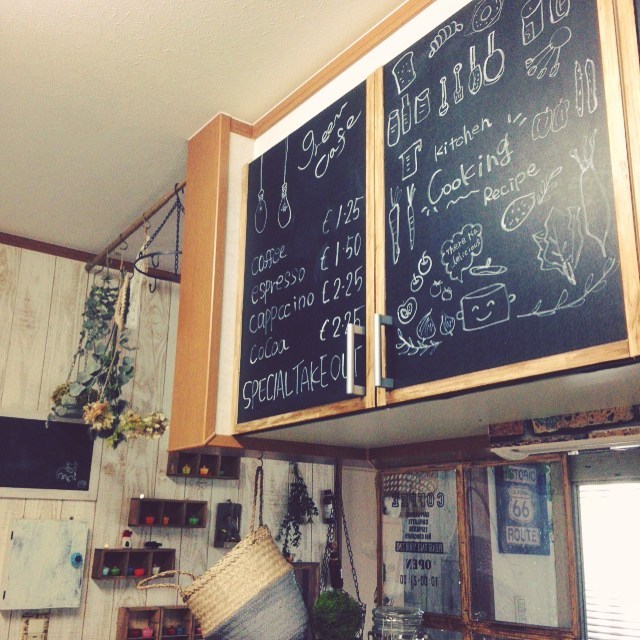 green
cafe
coffee € 1.25
Espresso € 1.50
cappccino € 2.25
cocoa € 2.25
SPECIAL TAKE OUT
kitchen
Cooking
Recipe
HISTORIC
US
66
ROUTE
COFFEE
OPEN